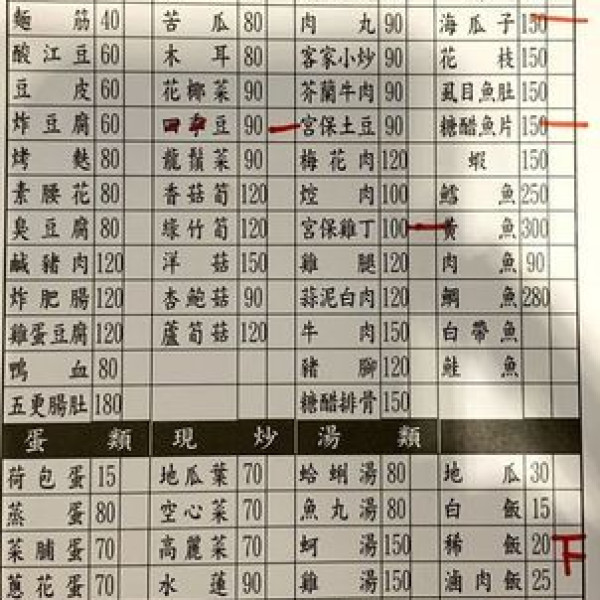 麵筋 40 苦瓜 80 肉丸 90 海瓜子 150
酸江豆 60 木耳 80 客家小炒 90 花枝 150
豆皮 60 花椰菜 90 芥蘭牛肉 90 虱目魚肚 150
炸豆腐 60 四季豆 90 宮保土豆 90 糖醋魚片 150
烤麩 80 龍鬚菜 90 梅花肉 120 蝦 150
素腰花 80 香菇筍 120 焢肉 100 鱈魚 250
臭豆腐 80 綠竹筍 120 宮保雞丁 100 黃魚 300
鹹豬肉 120 洋菇 150 雞腿 120 肉魚 90
炸肥腸 120 杏鮑菇 90 蒜泥白肉 120 鯛魚 280
雞蛋豆腐 120 蘆筍菇 120 牛肉 150 白帶魚
鴨血 80 豬腳 120 鮭魚
五更腸肚 180 糖醋排骨 150
蛋類 現炒 湯類
荷包蛋 15 地瓜葉 70 蛤蜊湯 80 地瓜 30
蒸蛋 80 空心菜 70 魚丸湯 80 白飯 15
菜脯蛋 70 高麗菜 70 蚵湯 150 稀飯 20 下
蔥花蛋 70 水蓮 90 雞湯 150 滷肉飯 25